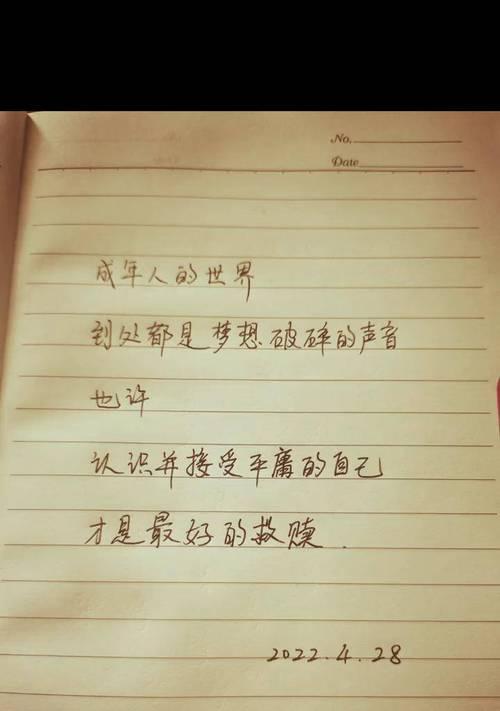 No.
Date
成年人的世界
到处都是梦想破碎的声音
也许
认识并接受平庸的自己
才是最好的救赎.
2022.4.28